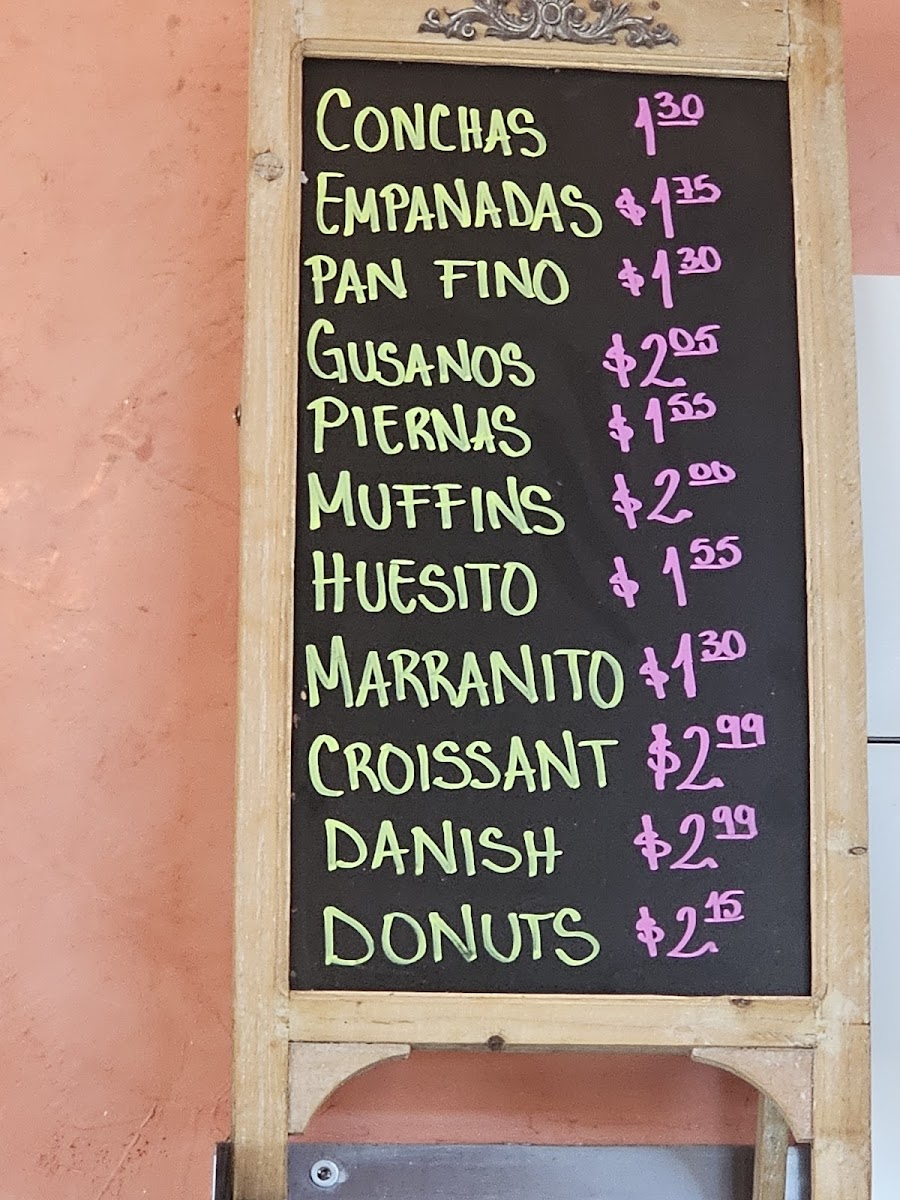 CONCHAS 1.30
EMPANADAS $1.75
PAN FINO $1.30
GUSANOS $2.05
PIERNAS $1.55
MUFFINS $2.00
HUESITO $1.55
MARRANITO $1.30
CROISSANT $2.99
DANISH $2.99
DONUTS $2.15